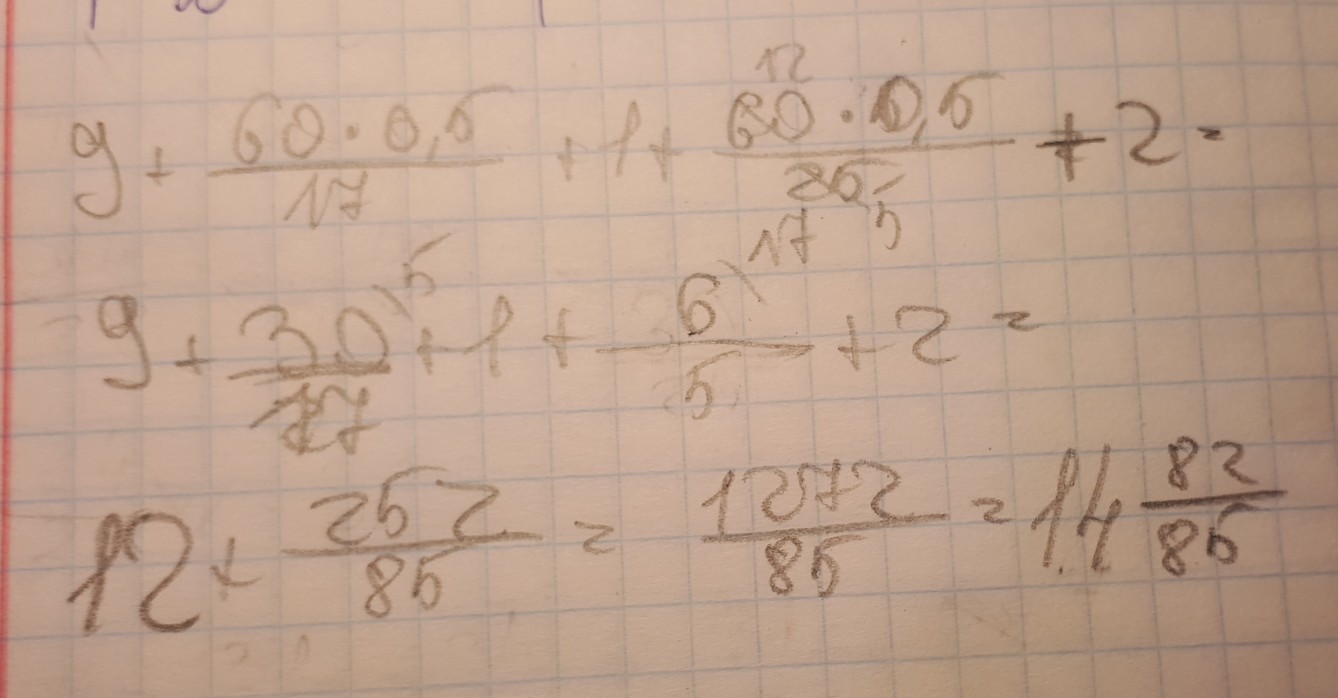 9 + 60·0,5/17 + 1 + 60·0,5/25 + 2 =
9 + 30/17 + 1 + 6/5 + 2 =
12 + 252/85 = 1272/85 = 14 82/85